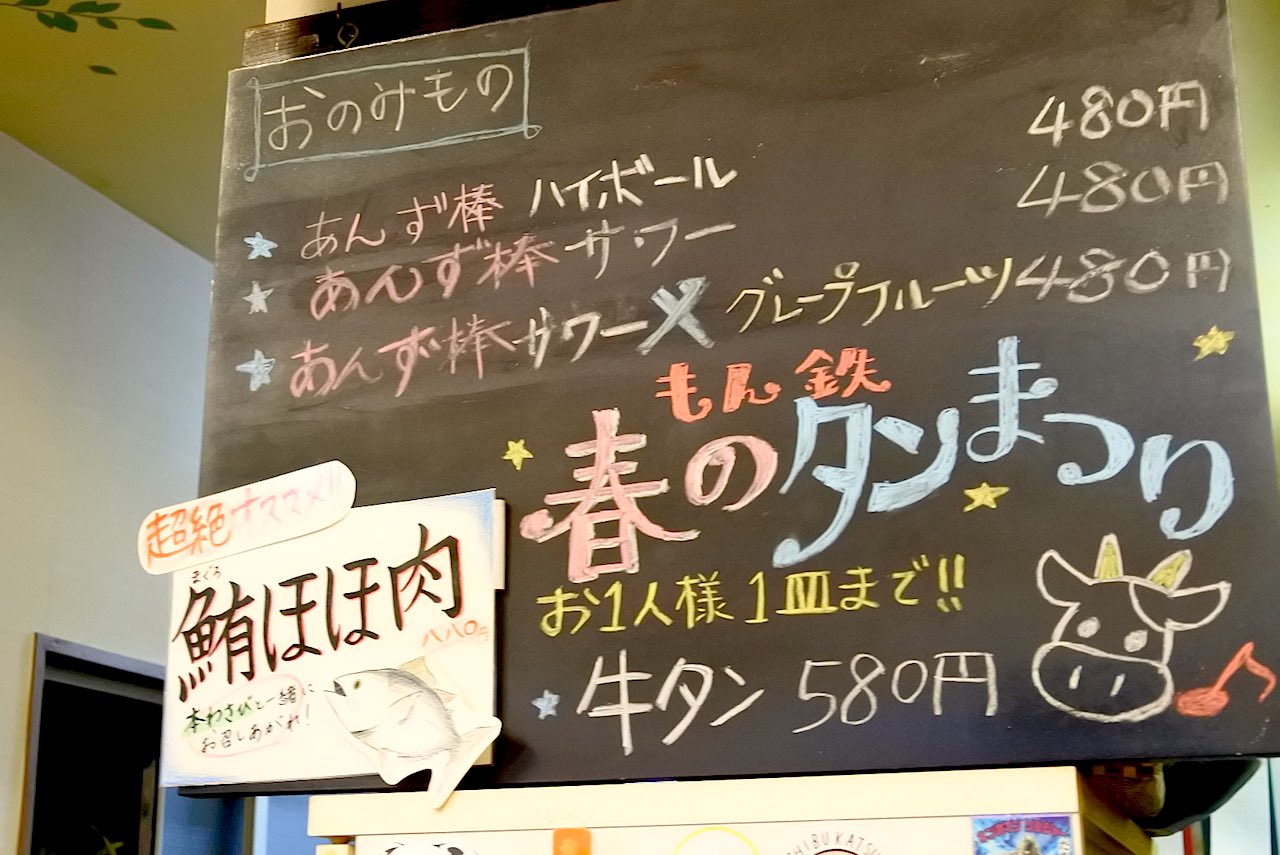 おのみもの
あんず棒 ハイボール 480円
あんず棒サワー 480円
あんず棒サワー×グレープフルーツ480円
もん鉄
春のタンまつり
お1人様1皿まで!!
牛タン 580円
超絶オススメ!!
まぐろ
鮪ほほ肉
八八〇円
本わさびと一緒に
お召しあがれ!